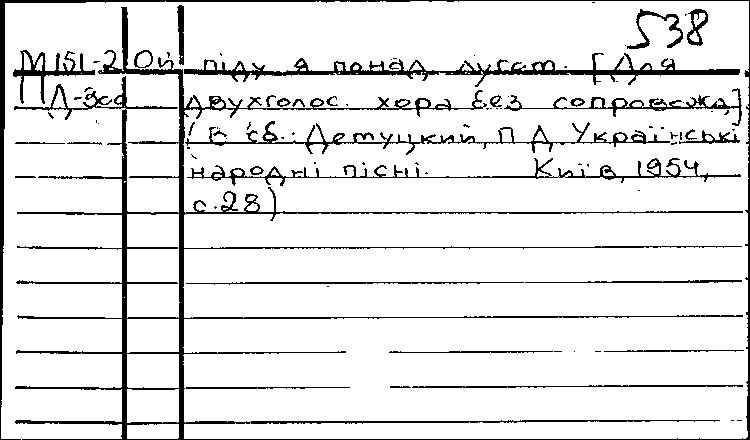 538
М151-2 Ой піду я понад лугом. [Для
Д-366 двухголос. хора без сопровожд]
(В сб.: Демуцкий, П Д. Українські
народні пісні. Київ, 1954,
с.28)